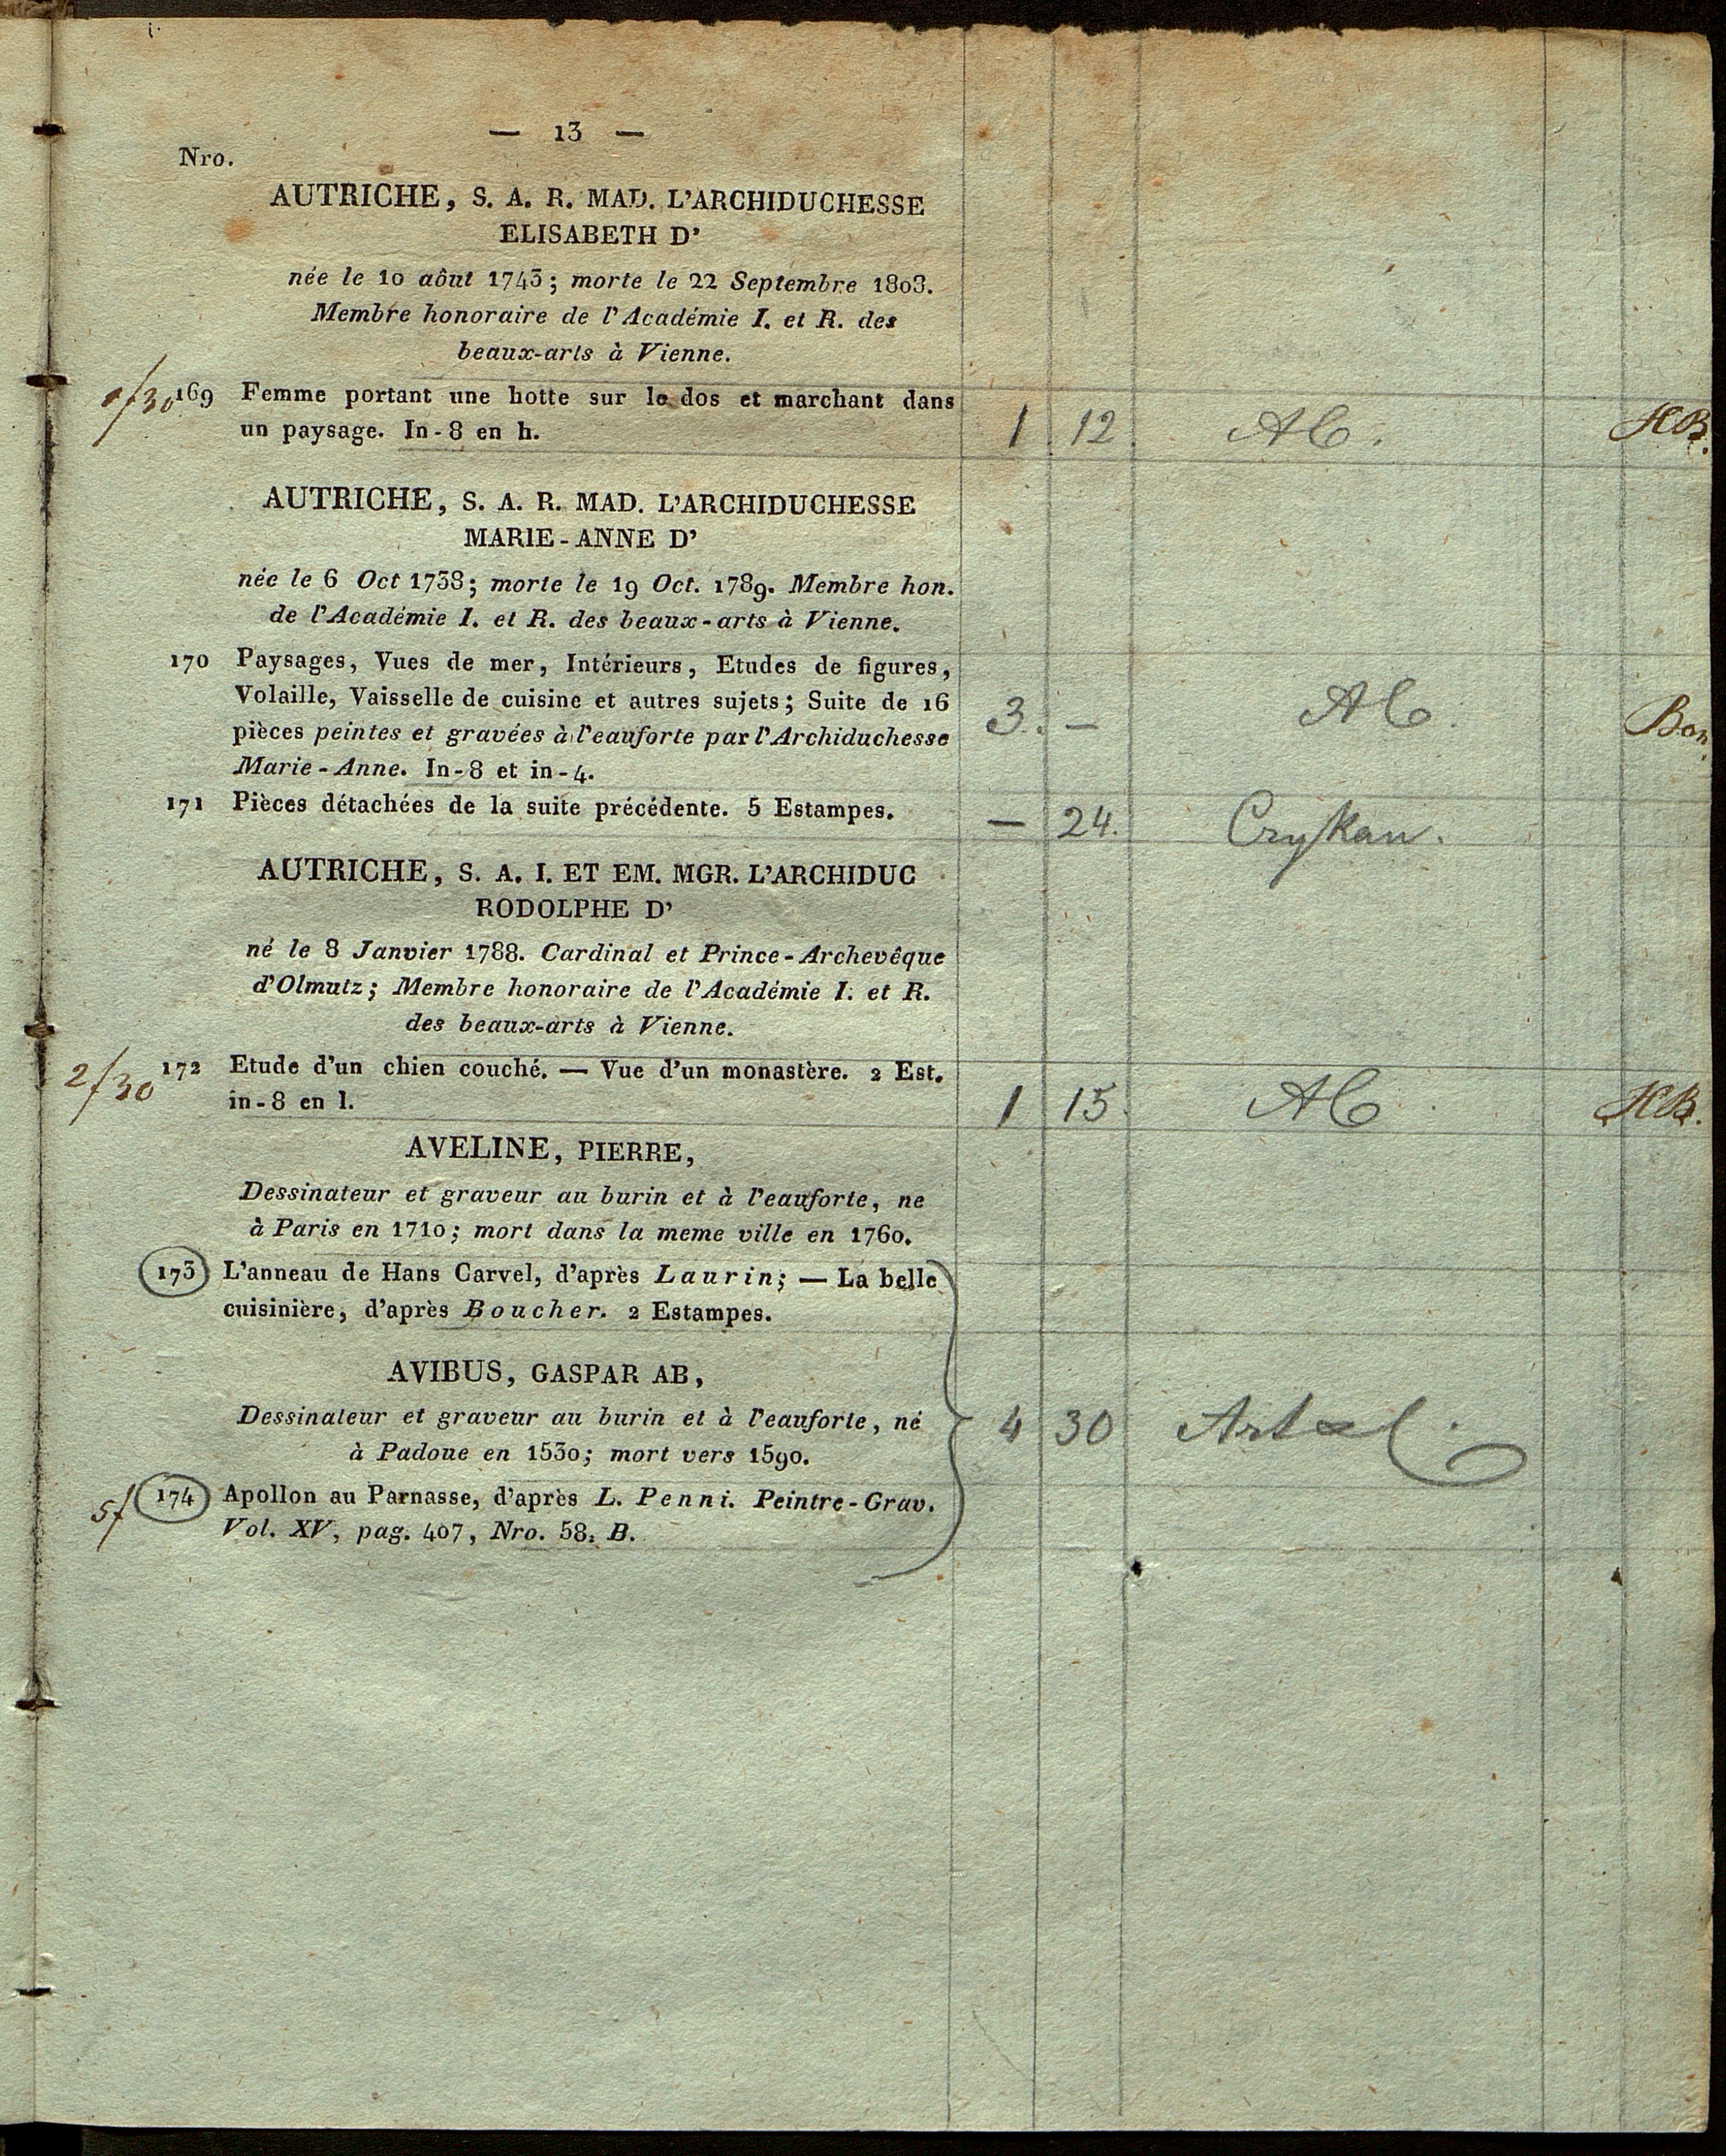 — 13 —
Nro.
AUTRICHE, S. A. R. MAD. L'ARCHIDUCHESSE
ELISABETH D'
née le 10 aôut 1743; morte le 22 Septembre 1803.
Membre honoraire de l'Académie I. et R. des
beaux-arts à Vienne.
169 Femme portant une hotte sur le dos et marchant dans
un paysage. In-8 en h.
1 12. HB.
AUTRICHE, S. A. R. MAD. L'ARCHIDUCHESSE
MARIE-ANNE D'
née le 6 Oct 1738; morte le 19 Oct. 1789. Membre hon.
de l'Académie I. et R. des beaux-arts à Vienne.
170 Paysages, Vues de mer, Intérieurs, Etudes de figures,
Volaille, Vaisselle de cuisine et autres sujets; Suite de 16
pièces peintes et gravées à l'eauforte par l'Archiduchesse
Marie-Anne. In-8 et in-4.
3. —
171 Pièces détachées de la suite précédente. 5 Estampes.
— 24.
AUTRICHE, S. A. I. ET EM. MGR. L'ARCHIDUC
RODOLPHE D'
né le 8 Janvier 1788. Cardinal et Prince-Archevêque
d'Olmutz; Membre honoraire de l'Académie I. et R.
des beaux-arts à Vienne.
2/30 172 Etude d'un chien couché. — Vue d'un monastère. 2 Est.
in-8 en l.
1 15. HB.
AVELINE, PIERRE,
Dessinateur et graveur au burin et à l'eauforte, ne
à Paris en 1710; mort dans la meme ville en 1760.
173 L'anneau de Hans Carvel, d'après Laurin; — La belle
cuisinière, d'après Boucher. 2 Estampes.
AVIBUS, GASPAR AB,
Dessinateur et graveur au burin et à l'eauforte, né
à Padoue en 1530; mort vers 1590.
4 30 Artal.
5f 174 Apollon au Parnasse, d'après L. Penni. Peintre-Grav.
Vol. XV, pag. 407, Nro. 58. B.